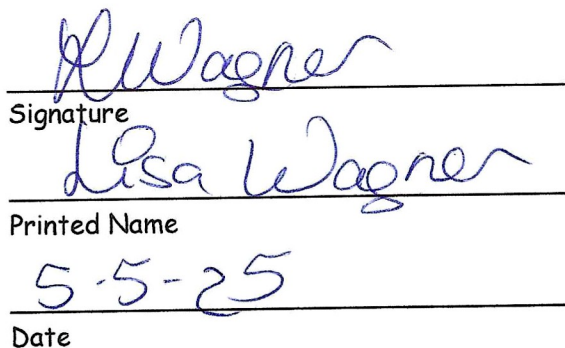 LWagner
Signature
Lisa Wagner
Printed Name
5-5-25
Date